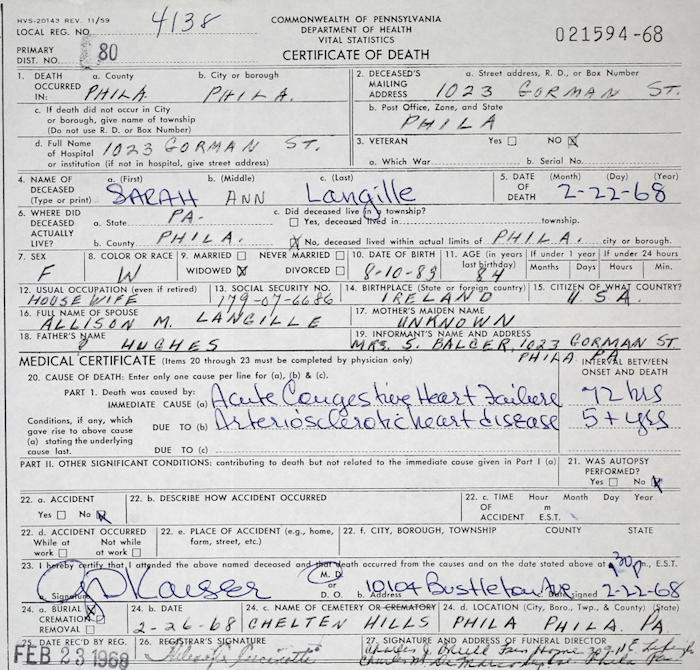 HVS-20143 REV. 11/59
LOCAL REG. NO. 4138
COMMONWEALTH OF PENNSYLVANIA
DEPARTMENT OF HEALTH
VITAL STATISTICS
021594-68
PRIMARY DIST. NO. 80
CERTIFICATE OF DEATH
1. DEATH OCCURRED IN: a. County PHILA. b. City or borough PHILA.
c. If death did not occur in City or borough, give name of township (Do not use R. D. or Box Number)
d. Full Name of Hospital or institution (if not in hospital, give street address) 1023 GORMAN ST.
2. DECEASED'S MAILING ADDRESS a. Street address, R. D., or Box Number 1023 GORMAN ST.
b. Post Office, Zone, and State PHILA
3. VETERAN Yes NO X
a. Which War b. Serial No.
4. NAME OF DECEASED (Type or print) a. (First) SARAH b. (Middle) ANN c. (Last) Langille
5. DATE OF DEATH (Month) (Day) (Year) 2-22-68
6. WHERE DID DECEASED ACTUALLY LIVE? a. State PA.
b. County PHILA.
c. Did deceased live in a township?
Yes, deceased lived in township.
X No, deceased lived within actual limits of PHILA. city or borough.
7. SEX F
8. COLOR OR RACE W
9. MARRIED NEVER MARRIED WIDOWED X DIVORCED
10. DATE OF BIRTH 8-10-83
11. AGE (in years last birthday) 84
If under 1 year Months Days
If under 24 hours Hours Min.
12. USUAL OCCUPATION (even if retired) HOUSEWIFE
13. SOCIAL SECURITY NO. 179-07-6686
14. BIRTHPLACE (State or foreign country) IRELAND
15. CITIZEN OF WHAT COUNTRY? U.S.A.
16. FULL NAME OF SPOUSE ALLISON M. LANGILLE
17. MOTHER'S MAIDEN NAME UNKNOWN
18. FATHER'S NAME HUGHES
19. INFORMANT'S NAME AND ADDRESS MRS. S. BALGER, 1023 GORMAN ST PHILA PA
MEDICAL CERTIFICATE (Items 20 through 23 must be completed by physician only)
INTERVAL BETWEEN ONSET AND DEATH
20. CAUSE OF DEATH: Enter only one cause per line for (a), (b) & (c).
PART 1. Death was caused by:
IMMEDIATE CAUSE (a) Acute Congestive Heart Failure 72 hrs
Conditions, if any, which gave rise to above cause (a) stating the underlying cause last.
DUE TO (b) Arteriosclerotic heart disease 5+ yrs
DUE TO (c)
PART II. OTHER SIGNIFICANT CONDITIONS: contributing to death but not related to the immediate cause given in Part I (a)
21. WAS AUTOPSY PERFORMED? Yes No X
22. a. ACCIDENT Yes No X
22. b. DESCRIBE HOW ACCIDENT OCCURRED
22. c. TIME OF ACCIDENT Hour Month Day Year m E.S.T.
22. d. ACCIDENT OCCURRED While at work Not while at work
22. e. PLACE OF ACCIDENT (e.g., home, farm, street, etc.)
22. f. CITY, BOROUGH, TOWNSHIP COUNTY STATE
23. I hereby certify that I attended the above named deceased and that death occurred from the causes and on the date stated above at 30 p m., E.S.T.
a. Signature Kaiser M. D. or D. O. b. Address 10104 Bustleton Ave Date signed 2-22-68
24. a. BURIAL X CREMATION REMOVAL
24. b. DATE 2-26-68
24. c. NAME OF CEMETERY OR CREMATORY CHELTEN HILLS
24. d. LOCATION (City, Boro., Twp., & County) (State) PHILA PHILA. PA
25. DATE REC'D BY REG. FEB 23 1968
26. REGISTRAR'S SIGNATURE
27. SIGNATURE AND ADDRESS OF FUNERAL DIRECTOR
Charles J.